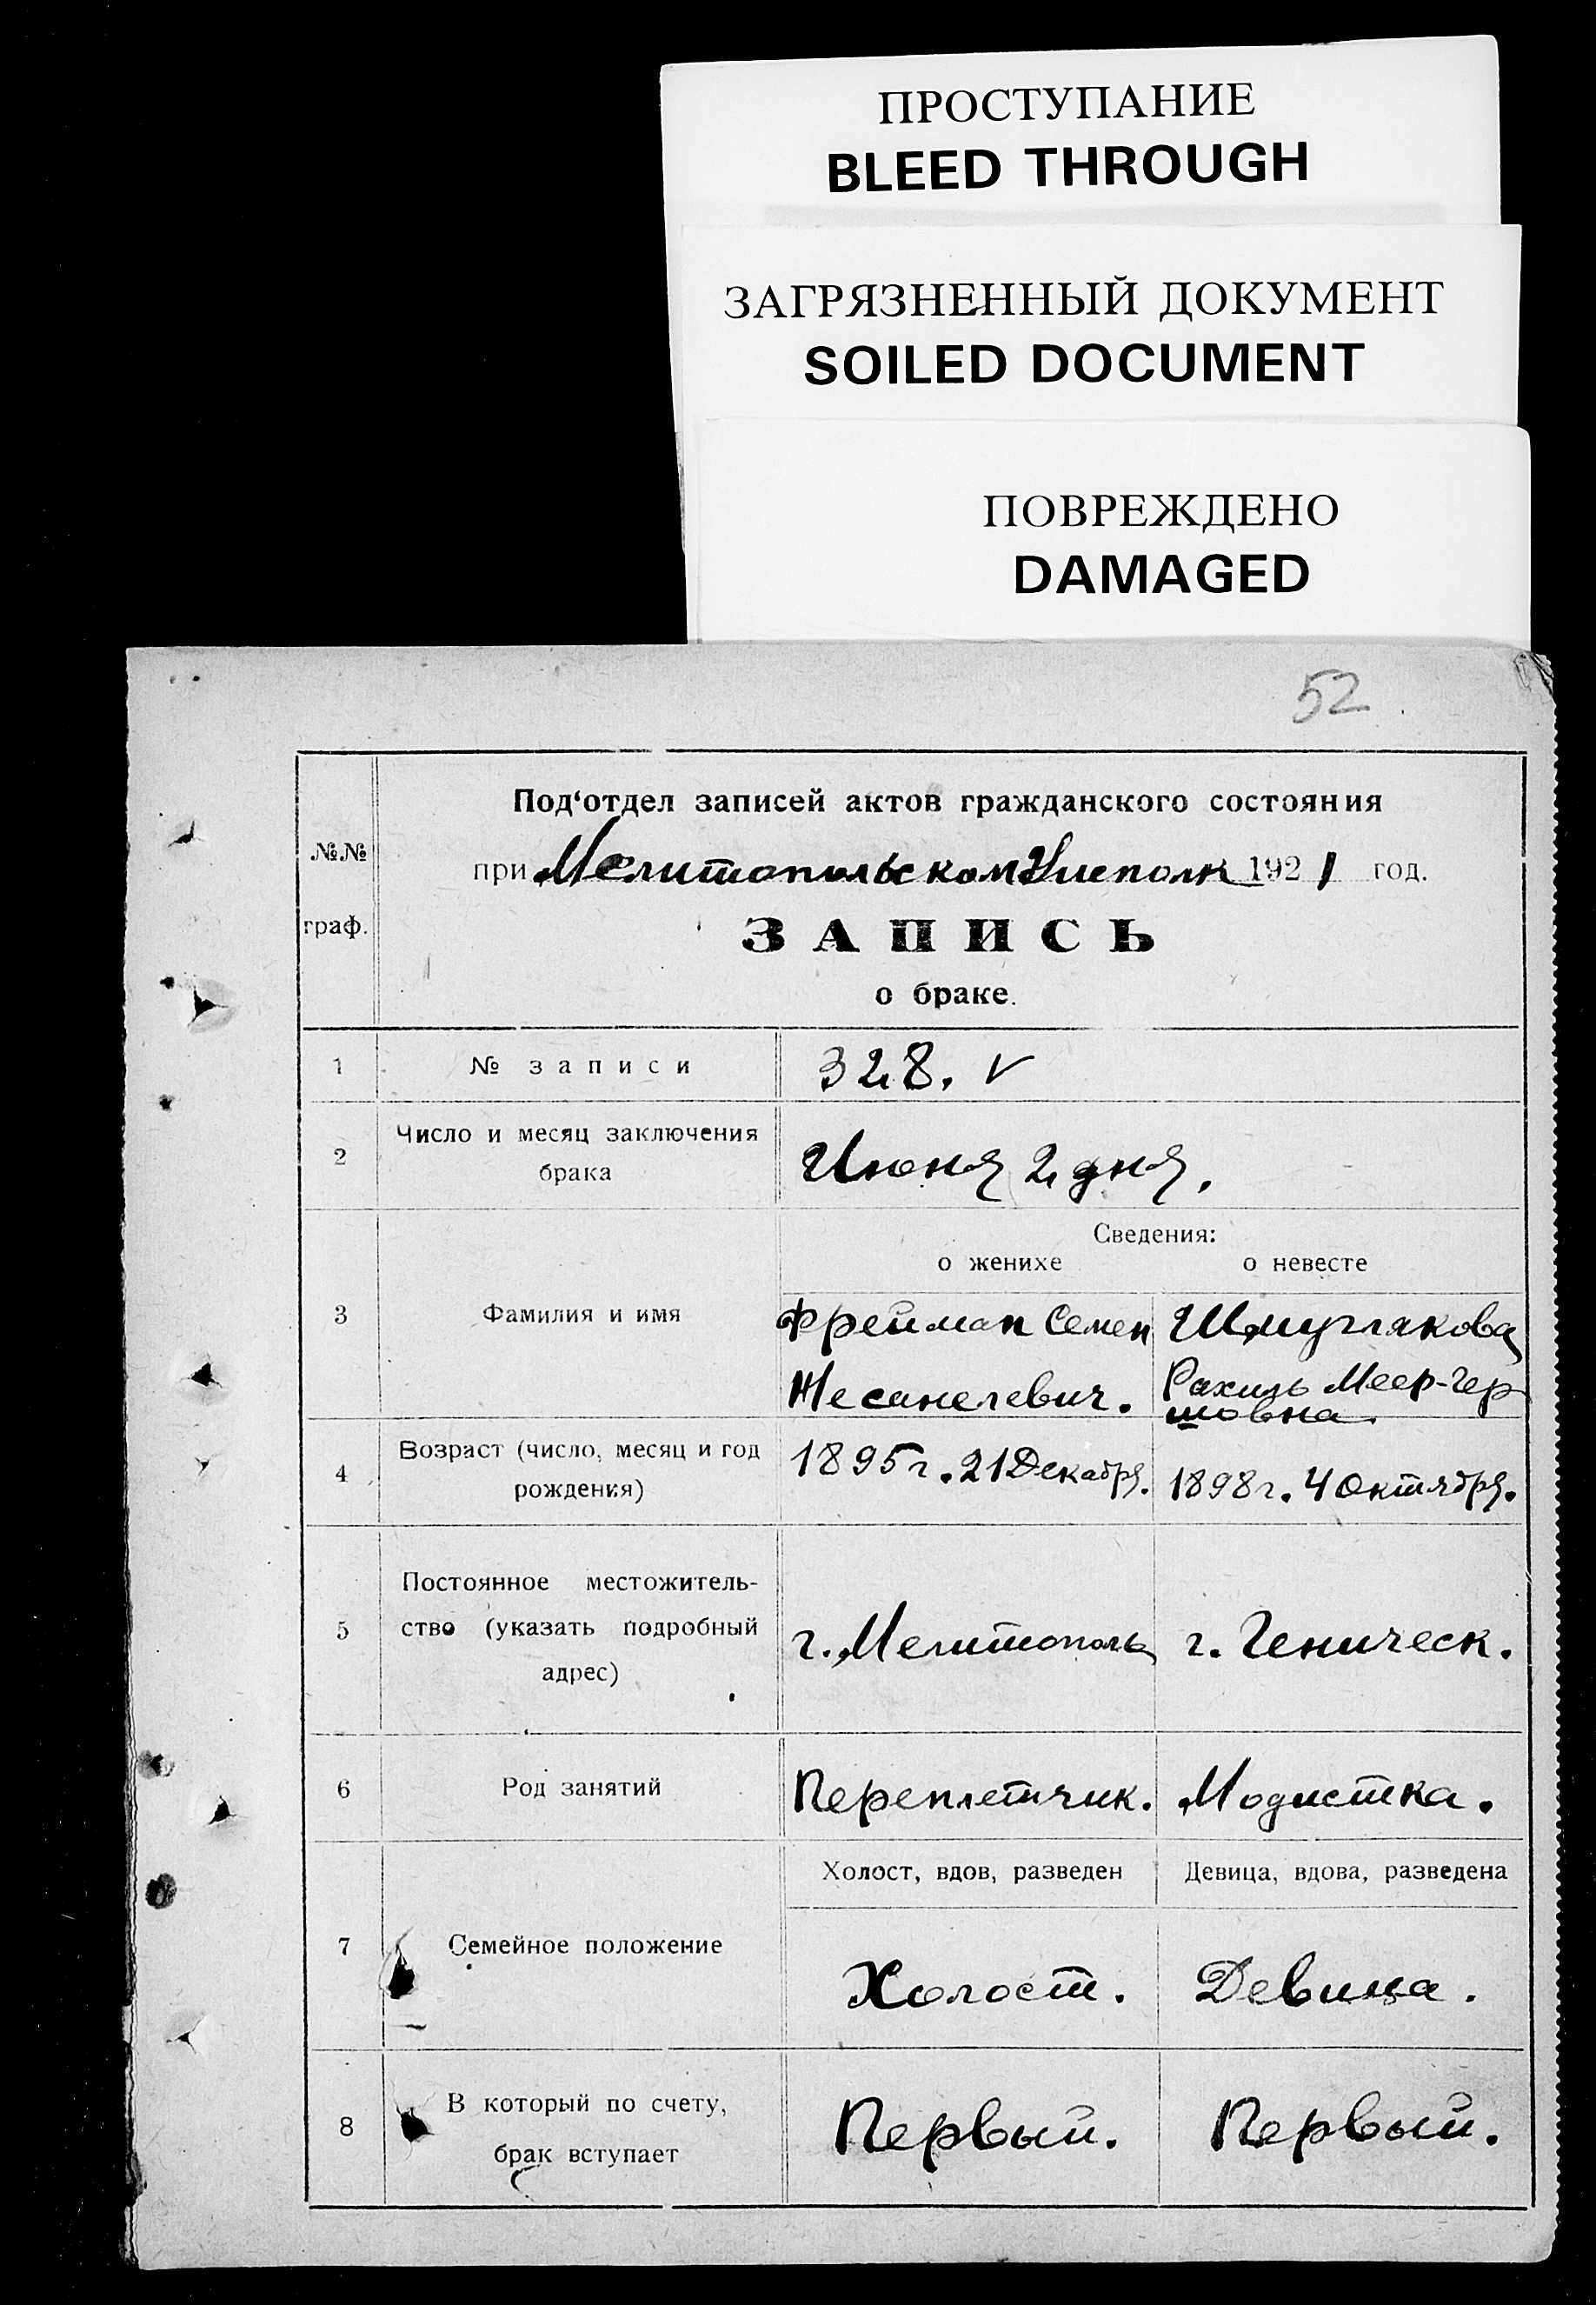 ПРОСТУПАНИЕ
BLEED THROUGH
ЗАГРЯЗНЕННЫЙ ДОКУМЕНТ
SOILED DOCUMENT
ПОВРЕЖДЕНО
DAMAGED
52
№№
граф.
Под‘отдел записей актов гражданского состояния
при Мелитопольском Уисполк 1921 год.
ЗАПИСЬ
о браке.
1 № записи 328. ✓
2 Число и месяц заключения
брака
Июня 2 дня.
Сведения:
о женихе о невесте
3 Фамилия и имя
Фрейман Семен
Шмуглякова
Рахиль Меер-Гер
шовна.
4 Возраст (число, месяц и год
рождения)
1895 г. 21 Декабря.
1898 г. 4 Октября.
5 Постоянное местожитель-
ство (указать подробный
адрес)
г. Мелитополь
г. Геническ.
6 Род занятий
Переплетчик.
Модистка.
Холост, вдов, разведен
Девица, вдова, разведена
7 Семейное положение
Холост.
Девица.
8 В который по счету,
брак вступает
Первый.
Первый.